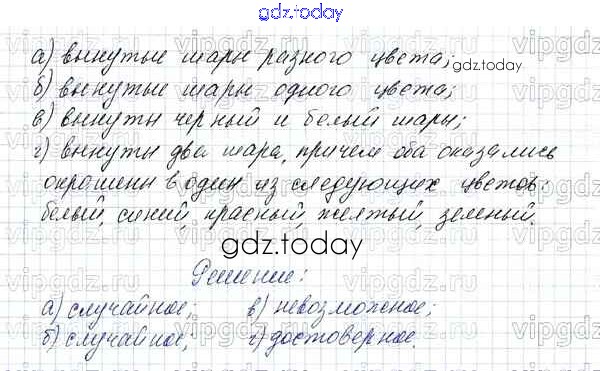 gdz.today
а) вынутые шары разного цвета;
gdz.today
б) вынутые шары одного цвета;
в) вынуты черный и белый шары;
г) вынуты два шара, причем оба оказались
окрашены в один из следующих цветов:
белый, синий, красный, желтый, зеленый.
gdz.today
Решение:
а) случайное; в) невозможное;
б) случайное; г) достоверное.